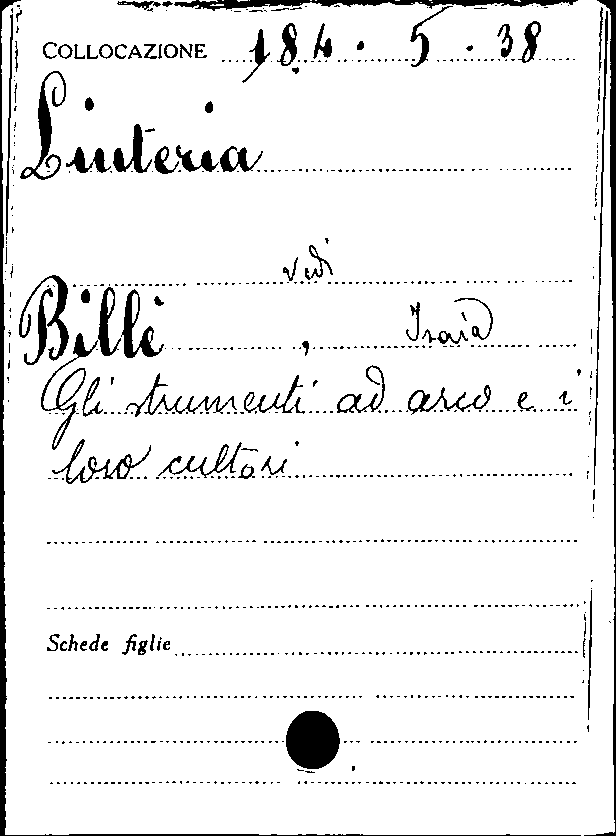 COLLOCAZIONE 184.5.38
Liuteria
vedi
Billè, Isaia
Gli strumenti ad arco e i
loro cultori
Schede figlie